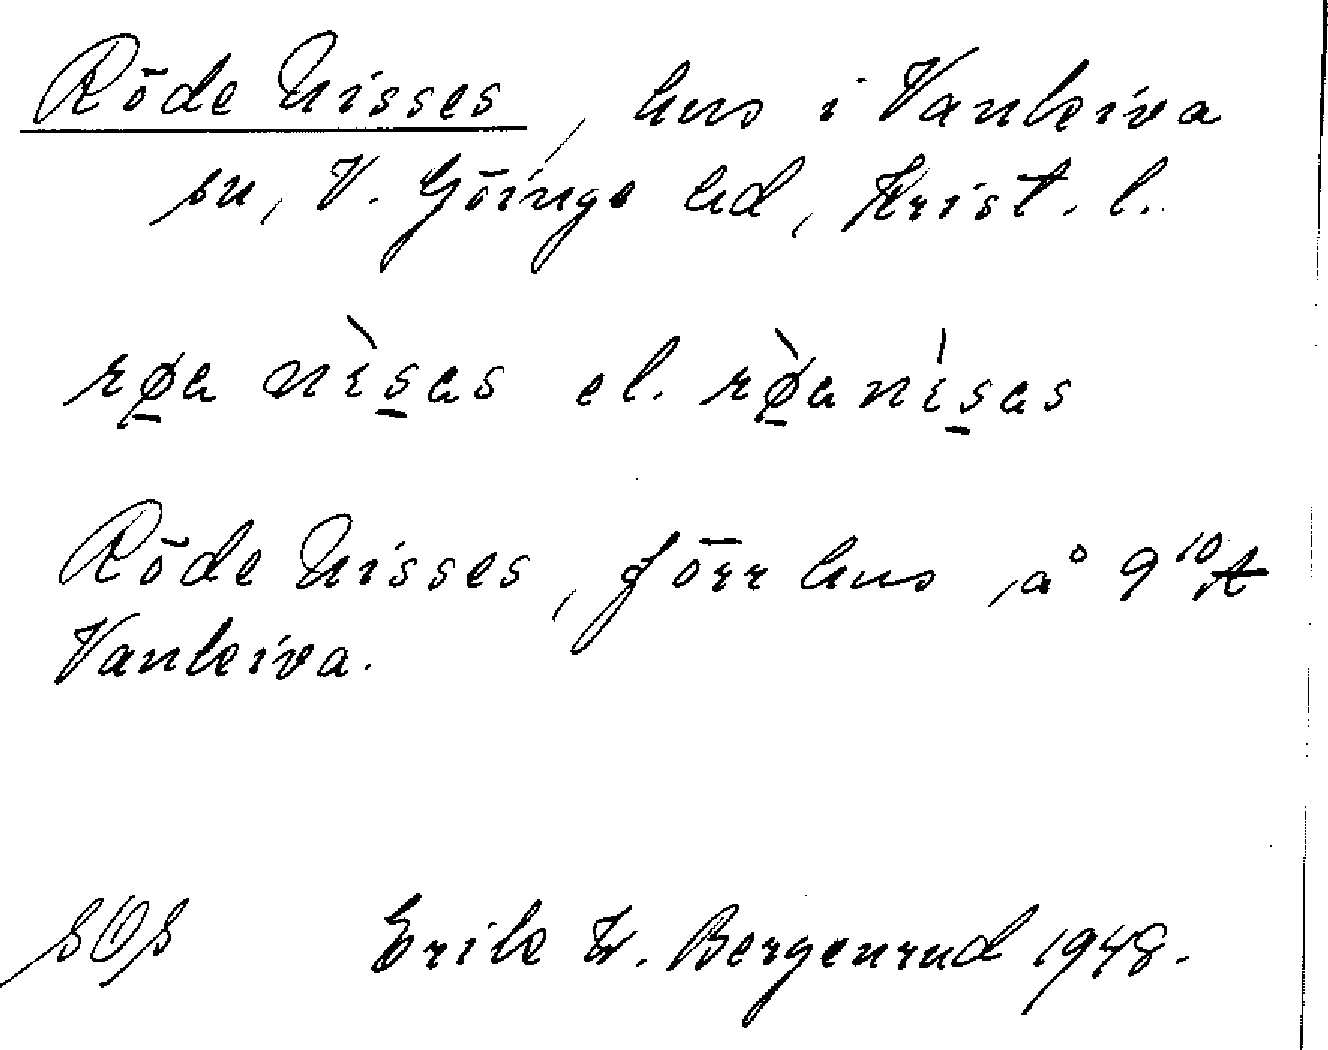 Röde Nisses, hus i Vankiva
sn, V. Göinge hd, Krist. l.
rø̱a nìs̱as el. rø̱̀anís̱as
Röde Nisses, förr hus å 9¹⁰A
Vankiva.
SOS Erik W. Bergenrud 1948.